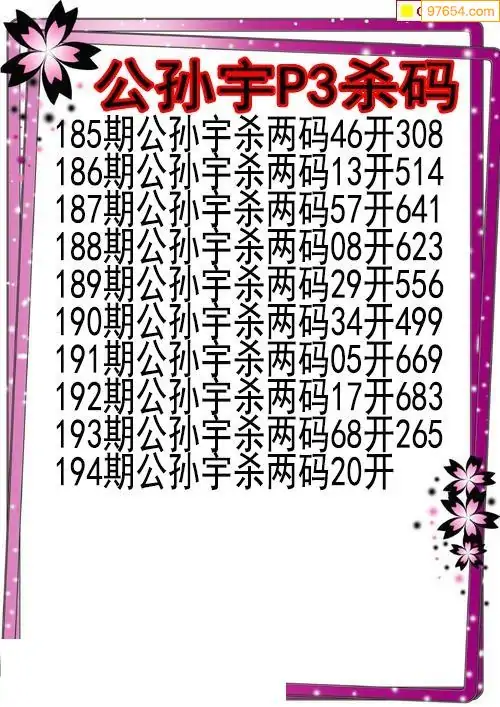 97654.com
公孙宇P3杀码
185期公孙宇杀两码46开308
186期公孙宇杀两码13开514
187期公孙宇杀两码57开641
188期公孙宇杀两码08开623
189期公孙宇杀两码29开556
190期公孙宇杀两码34开499
191期公孙宇杀两码05开669
192期公孙宇杀两码17开683
193期公孙宇杀两码68开265
194期公孙宇杀两码20开